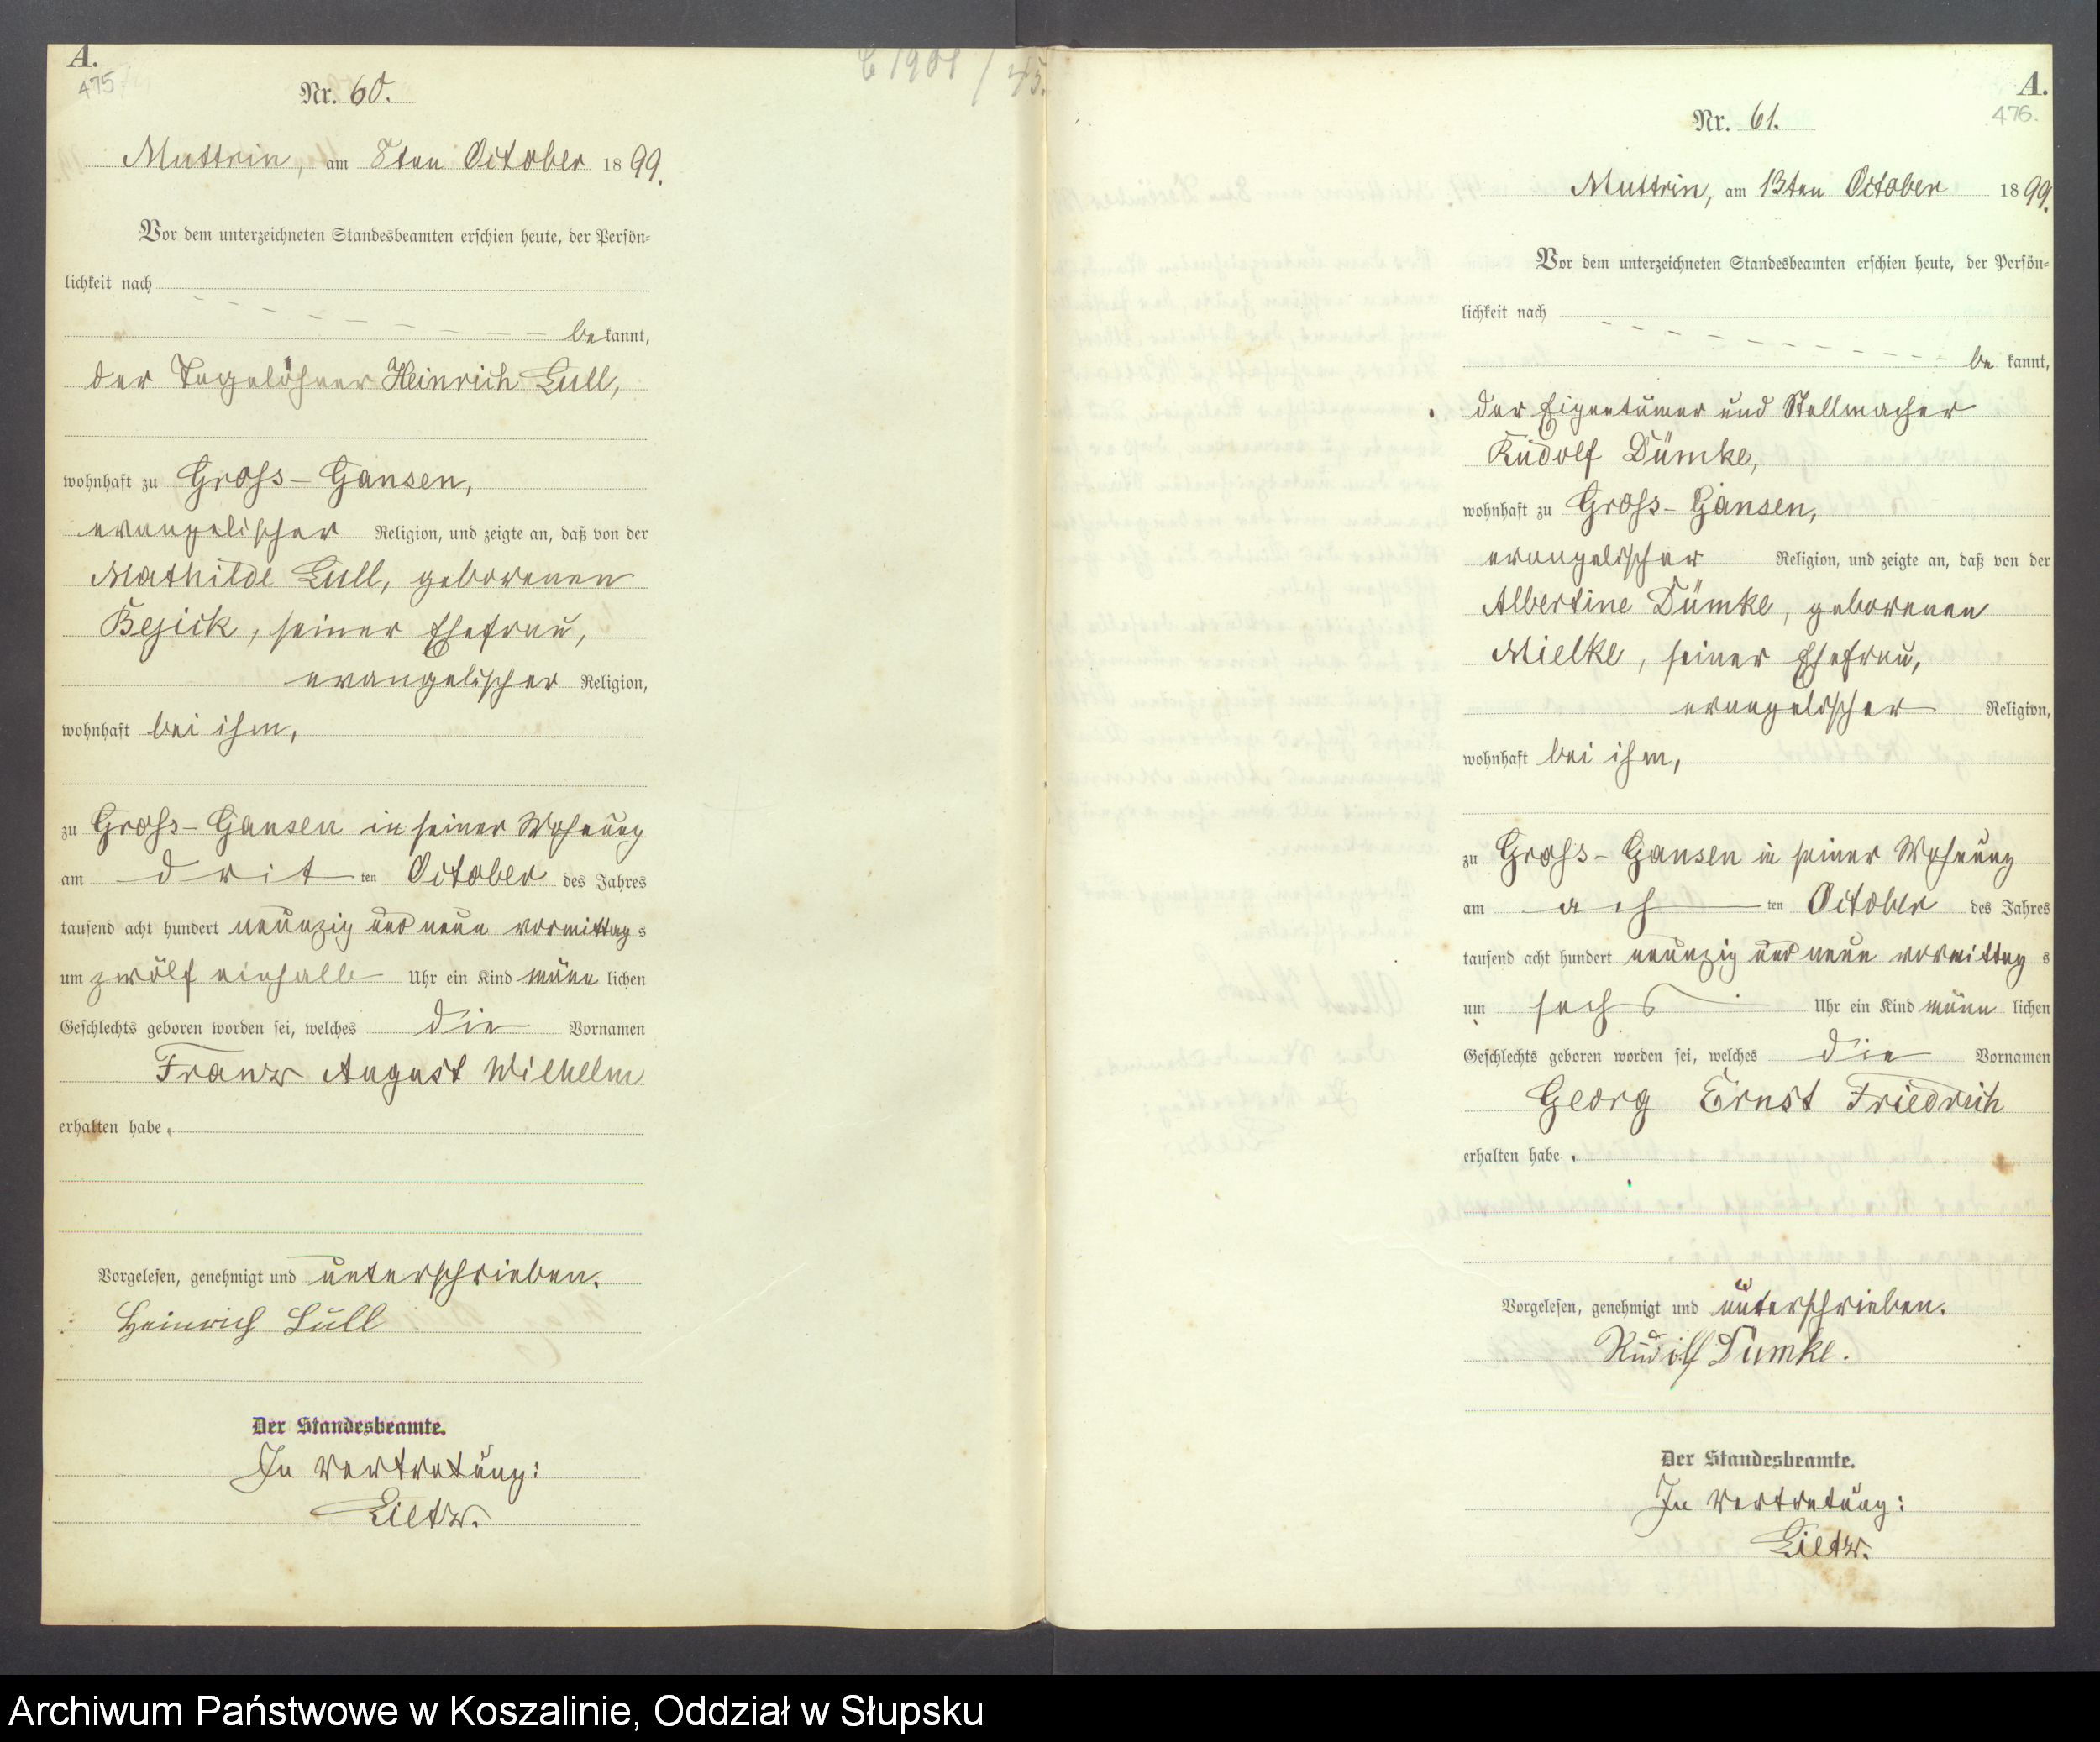 A.
475
Nr. 60.
Muttrin, am 8ten October 1899.
Vor dem unterzeichneten Standesbeamten erschien heute, der Persön=
lichkeit nach
bekannt,
der Tagelöhner Heinrich Lull,
wohnhaft zu Gross-Gansen,
evangelischer Religion, und zeigte an, daß von der
Mathilde Lull, geborenen
seiner Ehefrau,
evangelischer Religion,
wohnhaft bei ihm,
zu Gross-Gansen in seiner Wohnung
am dritten October des Jahres
tausend acht hundert neunzig und neun vormittags
um zwölf einhalb Uhr ein Kind männlichen
Geschlechts geboren worden sei, welches die Vornamen
Franz August Wilhelm
erhalten habe.
Vorgelesen, genehmigt und unterschrieben.
Heinrich Lull
Der Standesbeamte.
In Vertretung:
Lietz.
A.
476.
Nr. 61.
Muttrin, am 13ten October 1899.
Vor dem unterzeichneten Standesbeamten erschien heute, der Persön=
lichkeit nach
bekannt,
der Eigentümer und Stellmacher
Rudolf Dümke,
wohnhaft zu Gross-Gansen,
evangelischer Religion, und zeigte an, daß von der
Albertine Dümke, geborenen
Mielke, seiner Ehefrau,
evangelischer Religion,
wohnhaft bei ihm,
zu Gross-Gansen in seiner Wohnung
am achten October des Jahres
tausend acht hundert neunzig und neun vormittags
um sechs Uhr ein Kind männlichen
Geschlechts geboren worden sei, welches die Vornamen
Georg Ernst Friedrich
erhalten habe.
Vorgelesen, genehmigt und unterschrieben.
Rudolf Dümke.
Der Standesbeamte.
In Vertretung:
Lietz.
Archiwum Państwowe w Koszalinie, Oddział w Słupsku